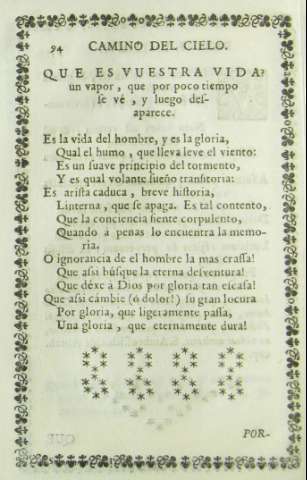 94 CAMINO DEL CIELO.
QUE ES VUESTRA VIDA?
un vapor, que por poco tiempo
se vé, y luego des-
aparece.
Es la vida del hombre, y es la gloria,
Qual el humo, que lleva leve el viento:
Es un suave principio del tormento,
Y es qual volante sueño transitoria:
Es arista caduca, breve historia,
Linterna, que se apaga. Es tal contento,
Que la conciencia siente corpulento,
Quando á penas lo encuentra la memo-
ria.
O ignorancia de el hombre la mas crassa!
Que asi búsque la eterna desventura!
Que déxe à Dios por gloria tan escasa!
Que asi cámbie (ó dolor!) su gran locura
Por gloria, que ligeramente passa,
Una gloria, que eternamente dura!
POR-